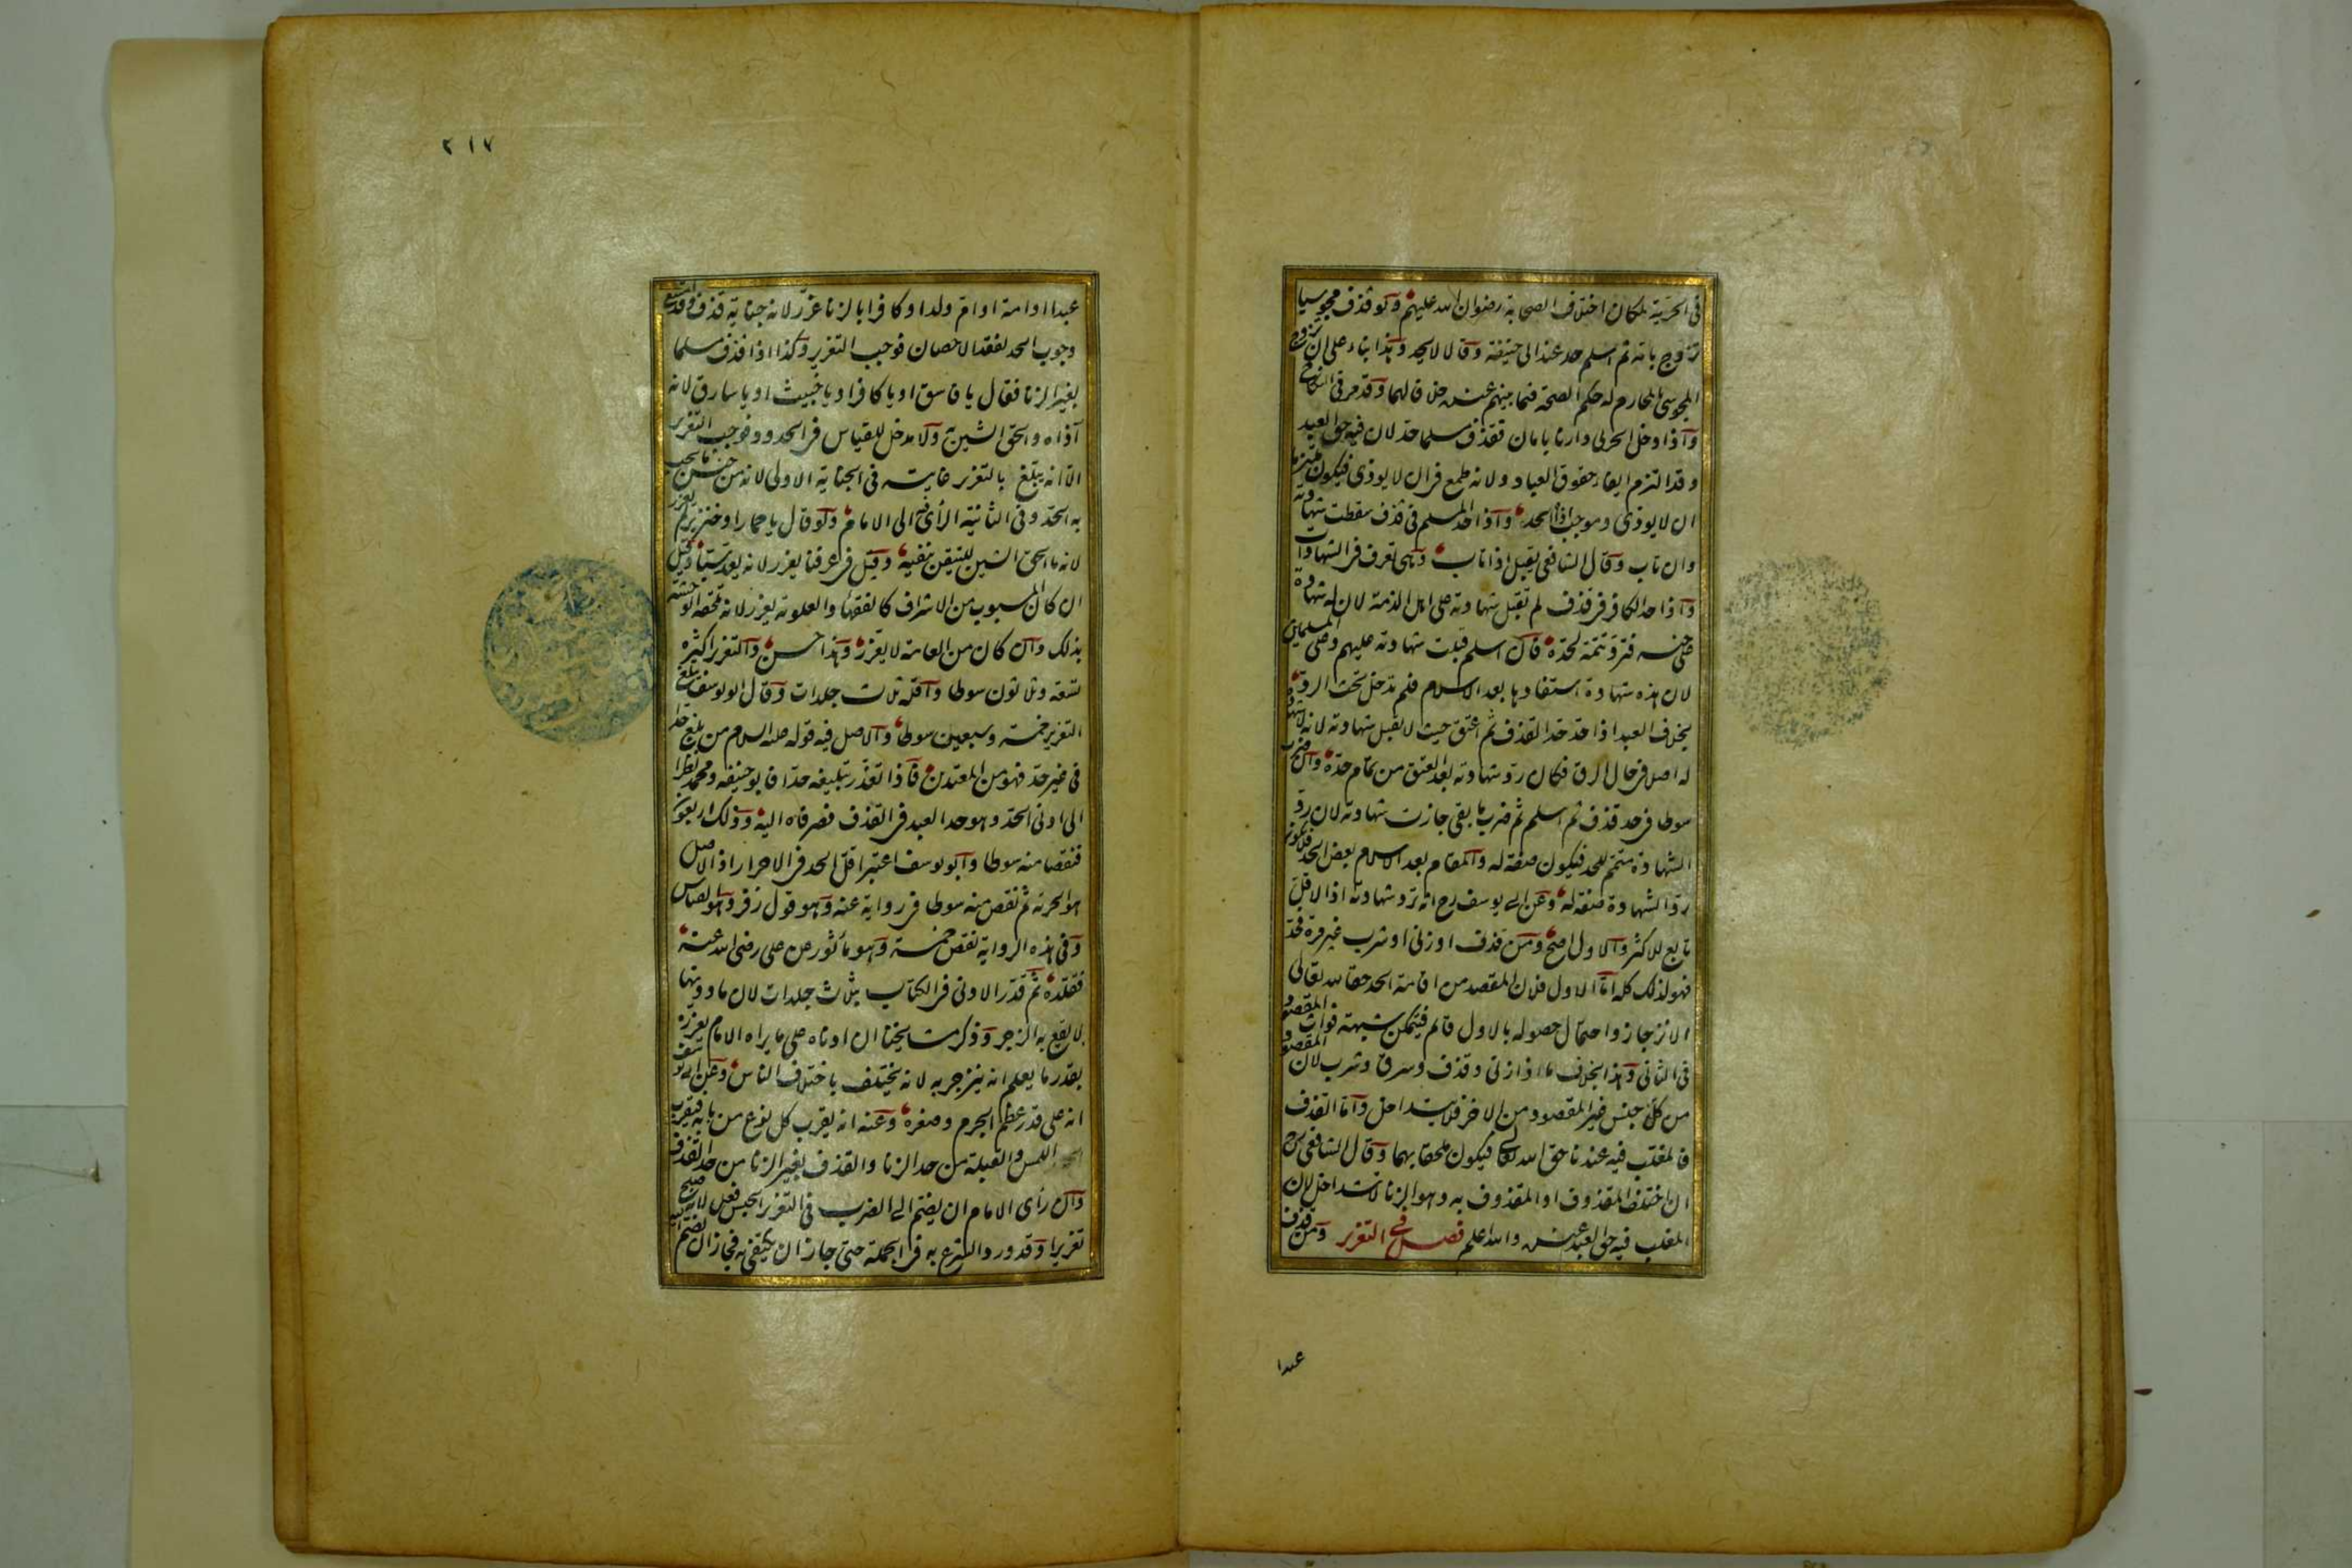 في الحرية لمكان اختلاف الصحابة رضوان الله عليهم ولو قذف مجوسيا
تزوج بامه ثم اسلم حد عند ابى حنيفة وقالا لا يحد وهذا بناء على ان تزوج
المجوسي بالمحارم له حكم الصحة فيما بينهم عنده خلافا لهما وقد مر في النكاح
واذا دخل الحربي دارنا بامان فقذف مسلما حد لان فيه حق العبد
وقد التزم ايفاء حقوق العباد ولانه طمع في ان لا يوذى فيكون ملتزما
ان لا يوذى وموجب اذاه الحد واذا حد المسلم في قذف سقطت شهادته
وان تاب وقال الشافعي يقبل اذا تاب وهي تعرف في الشهادات
واذا حد الكافر في قذف لم تقبل شهادته على اهل الذمة لان له شهادة
على جنسه فترد تتمة لحده فان اسلم قبلت شهادته عليهم وعلى المسلمين
لان هذه شهادة استفادها بعد الاسلام فلم تدخل تحت الرد
بخلاف العبد اذا حد حد القذف ثم اعتق حيث لا تقبل شهادته لانه لا شهادة
له اصلا في حال الرق فكان رد شهادته بعد العتق من تمام حده وان ضرب
سوطا في حد قذف ثم اسلم ثم ضرب ما بقي جازت شهادته لان رد
الشهادة متمم للحد فيكون صفة له والمقام بعد الاسلام بعض الحد فلا يكون
رد الشهادة صفة له وعن ابي يوسف رح انه ترد شهادته اذ الاقل
تابع للاكثر والاول اصح ومن قذف او زنى او شرب غير مرة فحد
فهو لذلك كله اما الاول فلان المقصد من اقامة الحد حقا لله تعالى
الانزجار واحتمال حصوله بالاول قائم فيتمكن شبهة فوات المقصود
في الثاني وهذا بخلاف ما اذا زنى وقذف وسرق وشرب لان المقصود
من كل جنس غير المقصود من الاخر فلا يتداخل واما القذف
فالمغلب فيه عندنا حق الله تعالى فيكون ملحقا بهما وقال الشافعي رح
ان اختلف المقذوف او المقذوف به وهو الزنا لا يتداخل لان
المغلب فيه حق العبد عنده والله اعلم فصل في التعزير ومن قذف
عبدا
٢١٧
عبدا او امة او ام ولد او كافرا بالزنا عزر لانه جناية قذف وقد امتنع
وجوب الحد لفقد الاحصان فوجب التعزير وكذا اذا قذف مسلما
بغير الزنا فقال يا فاسق او يا كافر او يا خبيث او يا سارق لانه
آذاه والحق الشين به ولا مدخل للقياس في الحدود فوجب التعزير
الا انه يبلغ بالتعزير غايته في الجناية الاولى لانه من جنس ما يجب
به الحد وفي الثانية الرأي الى الامام ولو قال يا حمار او خنزير لم يعزر
لانه ما الحق الشين للتيقن بنفيه وقيل في عرفنا يعزر لانه يعد سبا وقيل
ان كان المسبوب من الاشراف كالفقهاء والعلوية يعزر لانه تلحقه الوحشة
بذلك وان كان من العامة لا يعزر وهذا حسن والتعزير اكثره
تسعة وثلاثون سوطا واقله ثلاث جلدات وقال ابو يوسف يبلغ
التعزير خمسة وسبعين سوطا والاصل فيه قوله عليه السلام من بلغ حدا
في غير حد فهو من المعتدين فاذا تعذر تبليغه حدا فابو حنيفة ومحمد نظرا
الى ادنى الحد وهو حد العبد في القذف فصرفاه اليه وذلك اربعون
فنقصا منه سوطا وابو يوسف اعتبر اقل الحد في الاحرار اذ الاصل
هو الحرية ثم نقص منه سوطا في رواية عنه وهو قول زفر وهو القياس
وفي هذه الرواية نقص خمسة وهو مأثور عن على رضى الله عنه
فقلده ثم قدر الادنى في الكتاب بثلاث جلدات لان ما دونها
لا يقع به الزجر وذكر مشايخنا ان ادناه على ما يراه الامام يعزره
بقدر ما يعلم انه ينزجر به لانه يختلف باختلاف الناس وعن ابي يوسف
انه على قدر عظم الجرم وصغره وعنه انه يقرب كل نوع من بابه فيقرب
اللمس والقبلة من حد الزنا والقذف بغير الزنا من حد القذف
وان رأى الامام ان يضم الى الضرب في التعزير الحبس فعل لانه صلح
تعزيرا وقد ورد الشرع به في الجملة حتى جاز ان يكتفى به فجاز ان يضم اليه